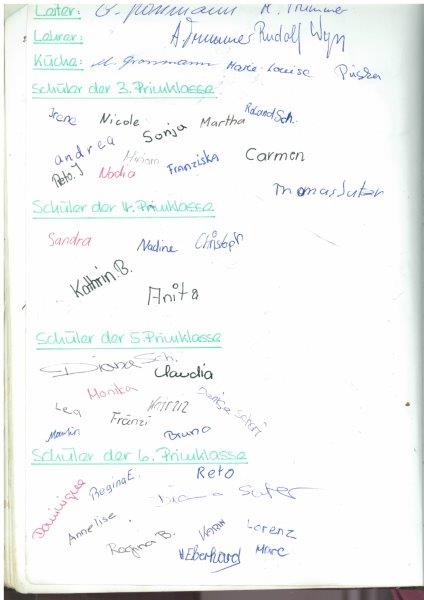 Leiter: G. Grossmann M. Trümmer
Lehrer: A Trummer Rudolf Wyss
Küche: M. Grossmann Marie-Louise
Schüler der 3. Primklasse
Irene Nicole Sonja Martha Roland Sch.
andrea Miriam Franziska Carmen
Reto.J Nadia
Thomas Suter
Schüler der 4. Primklasse
Sandra Nadine Christoph
Kathrin B.
Anita
Schüler der 5. Primklasse
Diana Sch. Claudia
Monika
Lea Fränzi
Bruno
Schüler der 6. Primklasse
Dominique Regina E. Reto
Diana Suter
Annelise Regina B. Karin Lorenz
H Eberhard Marc